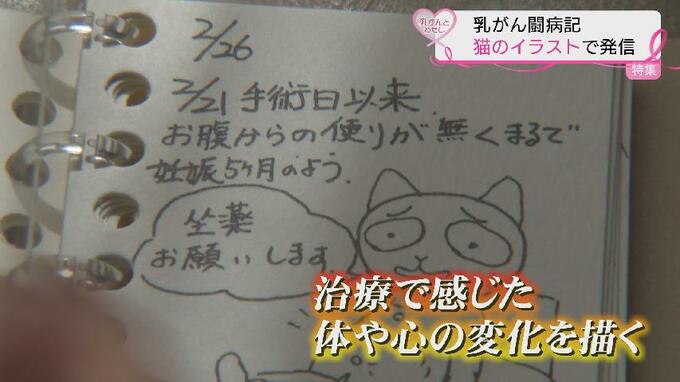 乳がんと
わたし
乳がん闘病記
猫のイラストで発信
特集
2/26
2/21 手術日以来
お腹からの便りが無くまるで
妊娠5ヶ月のよう.
坐薬
お願いします
治療で感じた
体や心の変化を描く